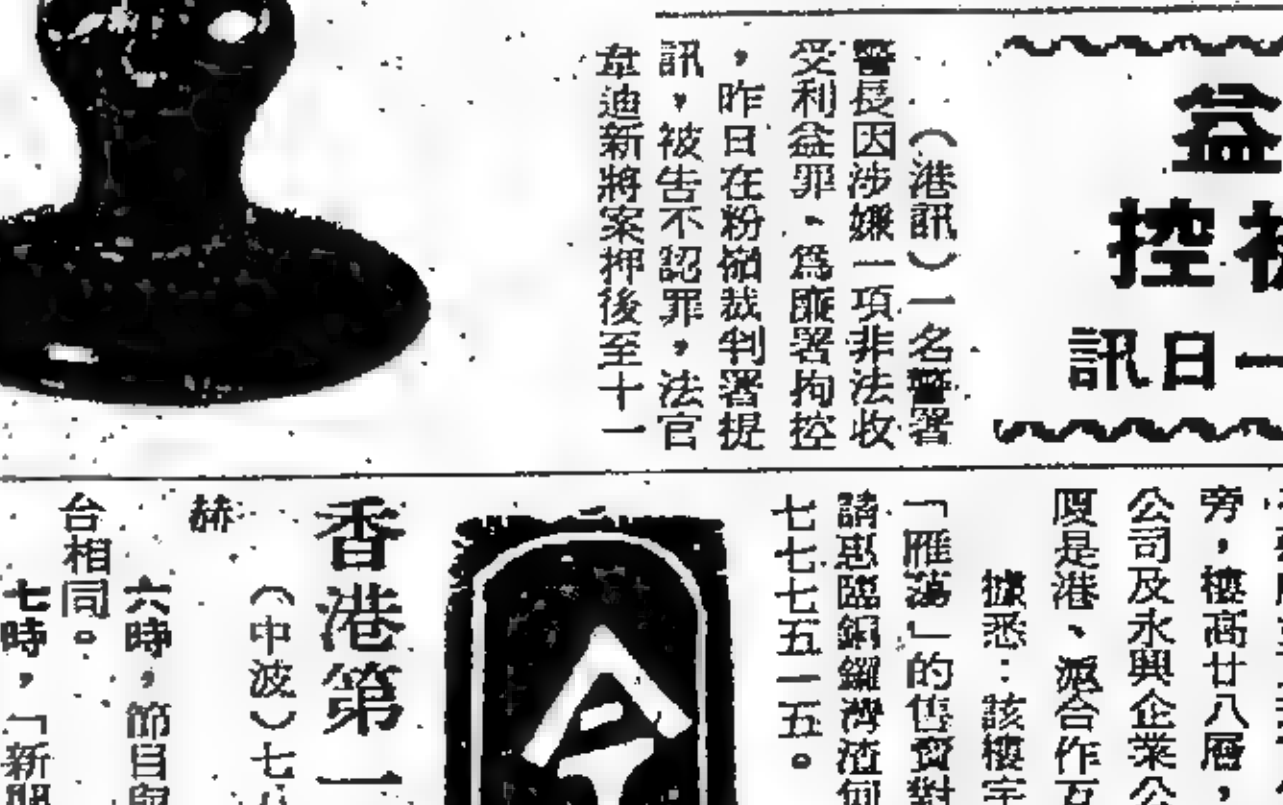 益
控
一日訊
（港訊）一名警署
警長因涉嫌一項非法收
受利益罪、爲廉署拘控
，昨日在粉嶺裁判署提
訊，被告不認罪，法官
韋迪新將案押後至十一
旁，樓高廿八層，
公司及永興企業公
厦是港、源合作
據悉：該樓宇
「雁蕩」的售賣對
請惠臨銅鑼灣渣甸
七七七五一五。
今
香港第一
（中波）七
赫
六時，節目與
台相同。
七時，「新聞